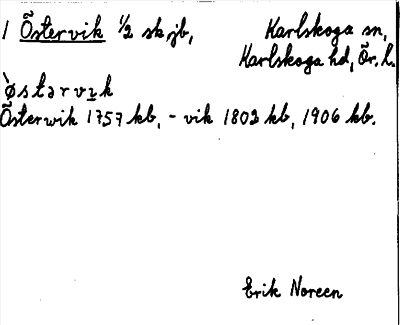 1 Östervik ½ sk, jb,
Karlskoga sn,
Karlskoga hd, Ör. l.
`østərvɪk
Österwik 1757 kb, - vik 1802 kb, 1906 kb.
Erik Noreen